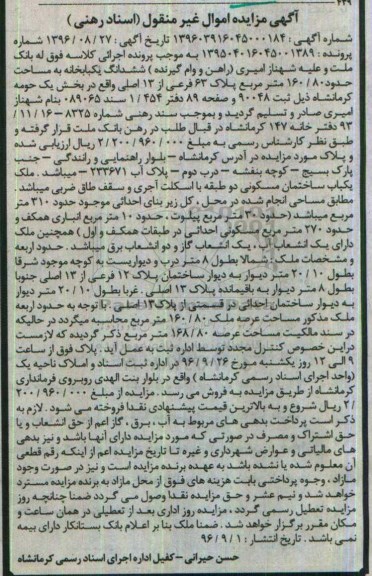 آگهی مزایده اموال غیر منقول (اسناد رهنی)
شماره آگهی : ۱۳۹۶۰۳۹۱۶۰۴۵۰۰۰۱۸۴ تاریخ آگهی : ۱۳۹۶/۰۸/۲۷ شماره
پرونده : ۱۳۹۵۰۴۰۱۶۰۴۵۰۰۱۳۸۹ به موجب پرونده اجرائی کلاسه فوق له بانک
ملت و علیه شهناز امیری (راهن و وام گیرنده) ششدانگ یکبابخانه به مساحت
حدود ۱۶۰/۸۰ متر مربع پلاک ۶۳ فرعی از ۱۳ اصلی واقع در بخش یک حومه
کرمانشاه ذیل ثبت ۹۰۰۴۸ و صفحه ۸۹ دفتر ۱/۴۵۴ سند ۰۸۹۰۶۵ بنام شهناز
امیری صادر و تسلیم گردید و بموجب سند رهنی شماره ۸۳۲۵ – ۱۶/۱۱/
۹۳ دفتر خانه ۱۴۷ کرمانشاه در قبال طلب در رهن بانک ملت قرار گرفته و
طبق نظر کارشناس رسمی به مبلغ ۲/۲۰۰/۹۶۰/۰۰۰ ریال ارزیابی شده
و پلاک مورد مزایده در آدرس کرمانشاه – بلوار راهنمایی و رانندگی – جنب
پارک بسیج – کوچه بنفشه – درب دوم – پلاک آب ۲۳۳۶۷۱ – میباشد . ملک
یکباب ساختمان مسکونی دو طبقه با اسکلت آجری و سقف طاق ضربی میباشد
مطابق مساحی انجام شده در محل ، کل زیر بنای احداثی موجود حدود ۳۱۰ متر
مربع میباشد (حدود ۳۰ متر مربع پیلوت ، حدود ۱۰ متر مربع انباری همکف و
حدود ۲۷۰ متر مربع مسکونی احداثی در طبقات همکف و اول) همچنین ملک
دارای یک انشعاب آب ، یک انشعاب گاز و دو انشعاب برق میباشد . حدود اربعه
و مشخصات ملک : شمالا بطول ۸ متر درب و دیواریست به کوچه موجود شرقا
بطول ۲۰/۱۰ متر دیوار به دیوار ساختمان پلاک ۱۲ فرعی از ۱۳ اصلی جنوبا
بطول ۸ متر دیوار به باقیمانده پلاک ۱۳ اصلی . غربا بطول ۲۰/۱۰ متر دیوار
به دیوار ساختمان احداثی در قسمتی از پلاک ۱۳ اصلی . با توجه به حدود اربعه
ملک مذکور مساحت عرصه ملک ۱۶۰/۸۰ متر مربع محاسبه میگردد در حالیکه
در سند مالکیت مساحت عرصه ۱۶۸/۸۰ متر مربع ذکر گردیده که لازمست
دراین خصوص کنترل مجدد توسط اداره ثبت به عمل آید . پلاک فوق از ساعت
۹ الی ۱۲ روز یکشنبه مورخ ۹۶/۹/۲۶ در اداره ثبت اسناد و املاک ناحیه یک
(واحد اجرای اسناد رسمی کرمانشاه) واقع در بلوار بنت الهدی روبروی فرمانداری
کرمانشاه از طریق مزایده به فروش می رسد . مزایده از مبلغ ۲۰۰/۹۶۰/۰۰۰
/۲ ریال شروع و به بالاترین قیمت پیشنهادی نقدا فروخته می شود . لازم به
ذکر است پرداخت بدهی های مربوط به آب ، برق ، گاز اعم از حق انشعاب و یا
حق اشتراک و مصرف در صورتی که مورد مزایده دارای آنها باشد و نیز بدهی
های مالیاتی و عوارض شهرداری و غیره تا تاریخ مزایده اعم از اینکه رقم قطعی
آن معلوم شده یا نشده باشد به عهده برنده مزایده است و نیز در صورت وجود
مازاد ، وجوه پرداختی بابت هزینه های فوق از محل مازاد به برنده مزایده مسترد
خواهد شد و نیم عشر و حق مزایده نقدا وصول می گردد ضمنا چنانچه روز
مزایده تعطیل رسمی گردد ، مزایده روز اداری بعد از تعطیلی در همان ساعت و
مکان مقرر برگزار خواهد شد . ضمنا ملک بنا بر اعلام بانک بستانکار دارای بیمه
نمی باشد . تاریخ انتشار : ۹۶/۹/۱
حسن حیرانی – کفیل اداره اجرای اسناد رسمی کرمانشاه